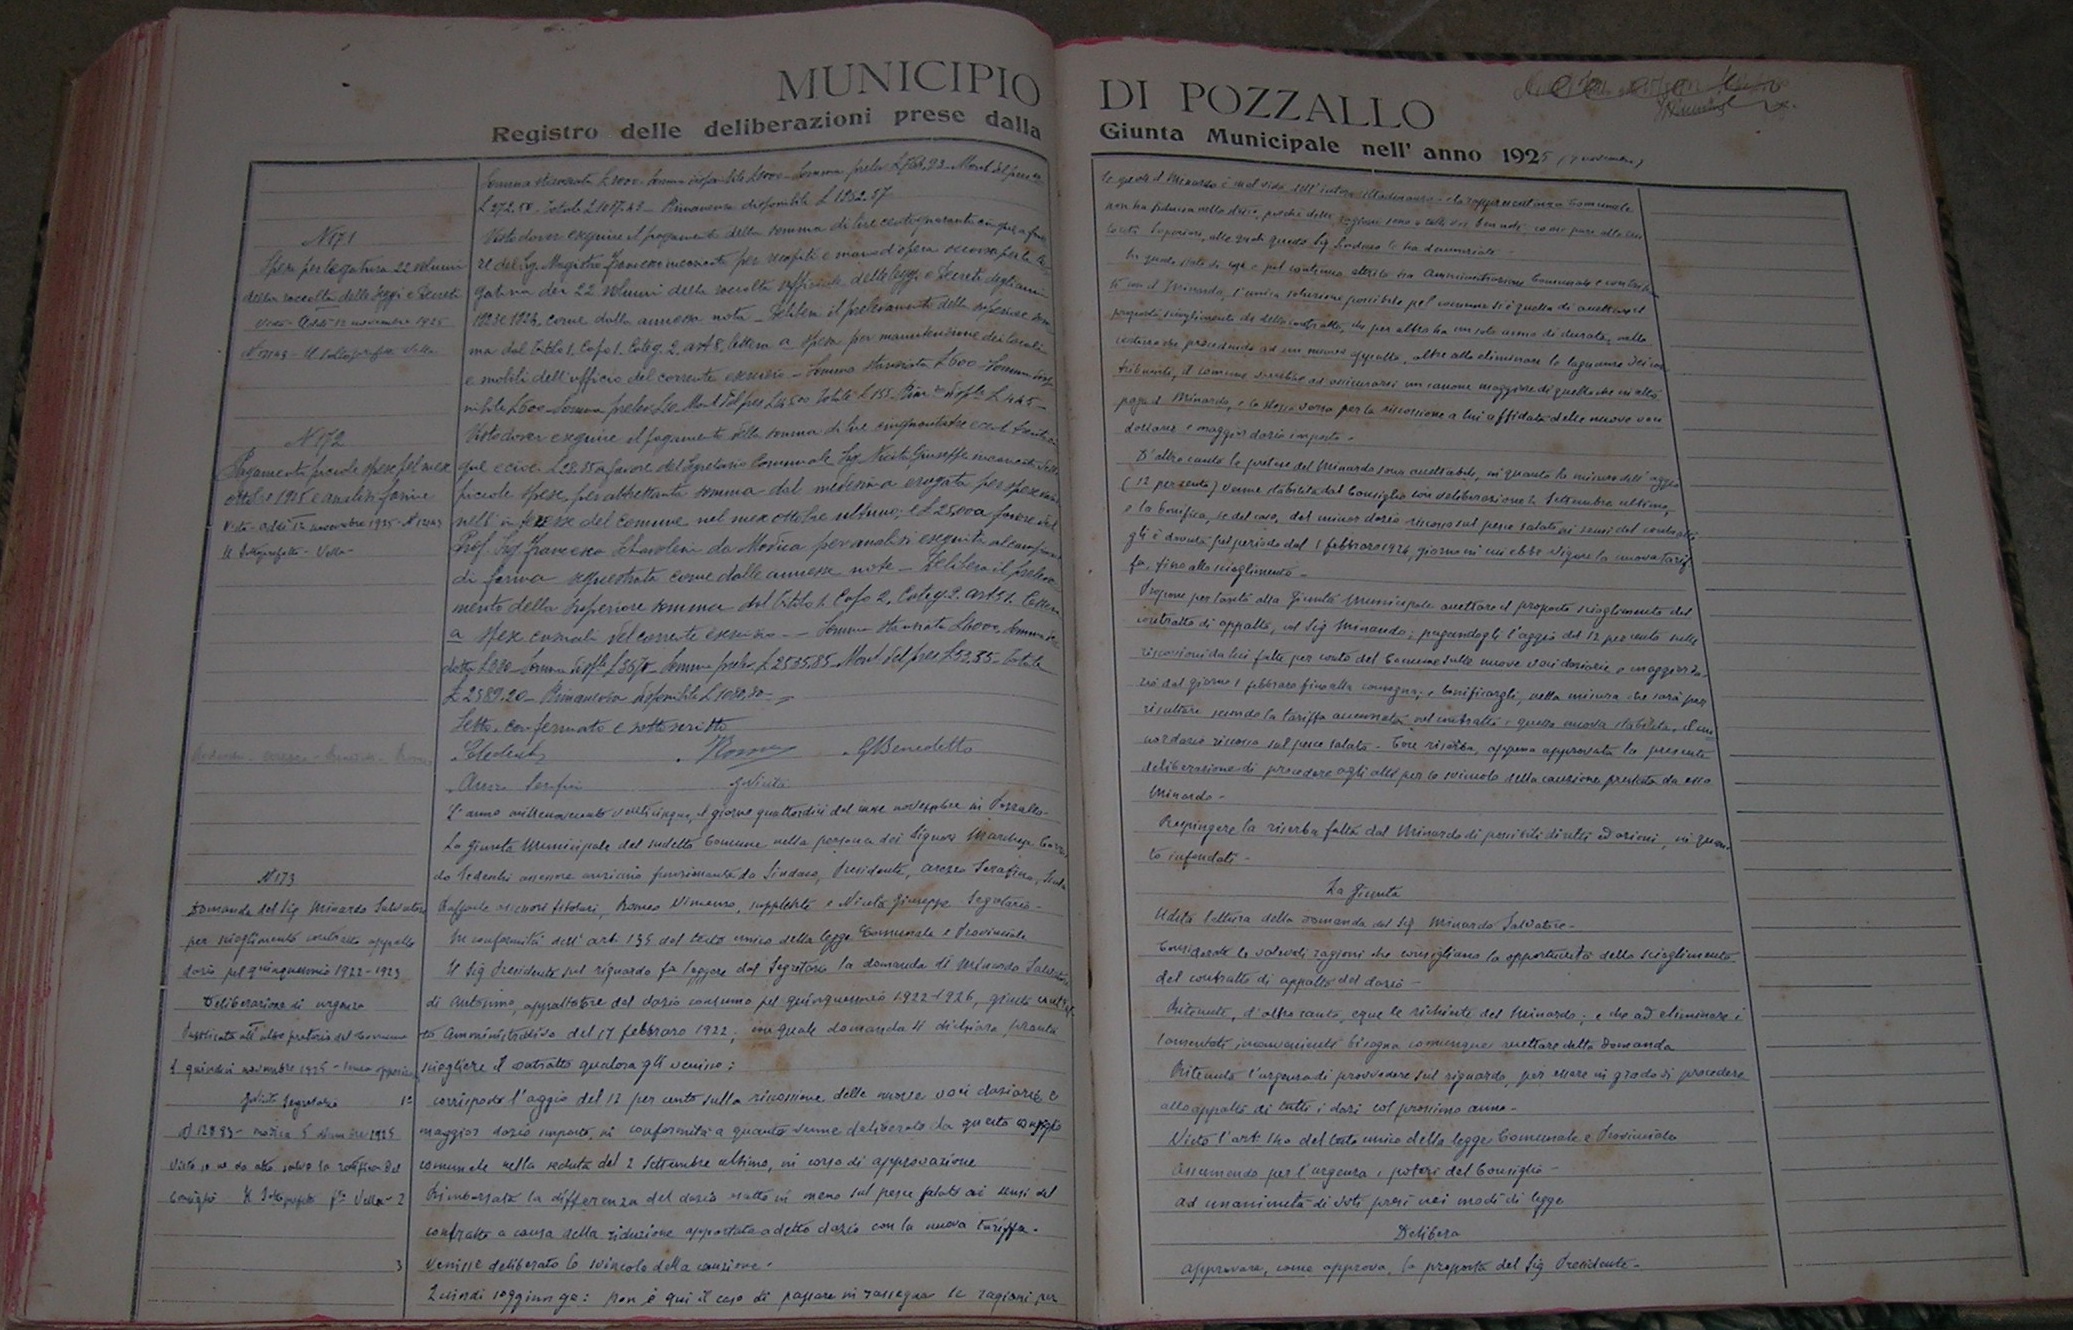 MUNICIPIO
Registro delle deliberazioni prese dalla
N 171
Spesa per legatura 22 volumi
della raccolta delle Leggi e Decreti
Visto - Addì 12 novembre 1925
Il Sottoprefetto Vella
N 172
Pagamento piccole spese pel mese
ottobre 1925 e analisi farine
Visto - addì 12 novembre 1925 - N 12143
Il Sottoprefetto - Vella -
N 173
Domanda del Sig Minardo Salvatore
per scioglimento contratto appalto
dazio pel quinquennio 1922-1923
Deliberazione di urgenza
Pubblicata all'albo pretorio del Comune
il quindici novembre 1925 - senza
Segretario
N 12883 - Modica 5 1925
la ratifica del
Consiglio Il Sottoprefetto Vella
Somma stanziata L 3000 - Somma disponibile
L 272.50 - Totale L - Rimanenza disponibile L
Visto dover eseguire il pagamento della somma di lire centoquarantacinque a favo
re del Sig. Magistro Francesco per e mano d'opera occorsa per la le
gatura dei 22 volumi della raccolta ufficiale delle leggi e Decreti degli anni
1923 e 1924, come dalla annessa nota - Delibera il prelevamento della superiore som
ma dal Titolo 1. Capo 1. Categ. 2. art 8. lettera a spesa per manutenzione dei locali
e mobili dell'ufficio del corrente esercizio - Somma stanziata L 600 - Somma dispo
nibile L 600 - Somma prelev L 10 Mont del pres L 145.00 Totale L 155 - L 445 -
Visto dover eseguire il pagamento della somma di lire cinquantatre e cent trentacin
que e cioè L 28.35 a favore del Segretario Comunale Sig. Nicita Giuseppe
piccole spese, per altrettanta somma dal medesimo erogata per spese
nell'interesse del Comune nel mese ottobre ultimo; e L 25.00 a favore del
Prof. Sig. Francesco da Modica per analisi eseguita al campione
di farina sequestrata come dalle annesse note - Delibera il preleva
mento della superiore somma dal Titolo 1. Capo 2. Categ. 2. art 31. lettera
a spese casuali del corrente esercizio - Somma stanziata L 4000, Somma
L 3670 - Somma prelev L 2535.85 Mont del pres L 53.35 - Totale
L 2589.20 - Rimanenza disponibile L 1080.80 -
Letto, confermato e sottoscritto
Tedeschi Romeo G Benedetto
Arezzo Serafino
L'anno millenovecento venticinque, il giorno quattordici del mese novembre in Pozzallo -
La Giunta Municipale del sudetto Comune nella persona dei Signori
do Tedeschi assessore anziano funzionante da Sindaco, Presidente, Arezzo Serafino,
Raffaele assessori titolari, Romeo Vincenzo, supplente e Nicita Giuseppe Segretario -
In conformità dell'art. 135 del testo unico della legge Comunale e Provinciale
Il Sig Presidente sul riguardo fa leggere dal Segretario la domanda di Minardo Salvatore
di Antonino, appaltatore del dazio consumo pel quinquennio 1922-1926, giusta contrat
to Amministrativo del 17 febbraro 1922, in quale domanda si dichiara pronto
sciogliere il contratto qualora gli venisse:
1° corrisposto l'aggio del 12 per cento sulla riscossione delle nuove voci daziarie e
maggior dazio imposto, in conformità a quanto venne deliberato da questo consiglio
comunale nella seduta del 2 Settembre ultimo, in corso di approvazione
2 Rimborsata la differenza del dazio esatto in meno sul pesce salato ai sensi del
contratto a causa della riduzione apportata a detto dazio con la nuova tariffa.
3 Venisse deliberato lo svincolo della cauzione.
Quindi soggiunge: Non è qui il caso di passare in rassegna le ragioni per
DI POZZALLO
Giunta Municipale nell'anno 1925 (7 novembre)
le quali il Minardo è mal visto dall'intera cittadinanza e la rappresentanza Comunale
non ha fiducia nello stesso, perchè dette ragioni sono a tutti voi ben note, come pure alle Au
torità Superiori, alle quali questo Sig Sindaco le ha denunziate -
In questo stato di cose e pel continuo attrito tra Amministrazione Comunale e contribuen
ti con il Minardo, l'unica soluzione possibile pel comune si è quella di accettare il
proposto scioglimento di detto contratto, che per altro ha un solo anno di durata, nella
certezza che procedendo ad un nuovo appalto, oltre alla eliminare le lagnanze dei con
tribuenti, il comune verrebbe ad assicurarsi un canone maggiore di quello che in atto
paga il Minardo, e lo stesso versa per la riscossione a lui affidata delle nuove voci
daziarie e maggior dazio imposto.
D'altro canto le pretese del Minardo sono accettabili, in quanto la misura dell'aggio
(12 per cento) venne stabilita dal Consiglio con deliberazione 2 Settembre ultimo,
e la bonifica, se del caso, del minor dazio riscosso sul pesce salato ai sensi del contratto
gli è dovuta pel periodo dal 1 febbraro 1924, giorno in cui ebbe vigore la nuova tarif
fa, fino allo scioglimento -
Propone pertanto alla Giunta Municipale accettare il proposto scioglimento del
contratto di appalto, col Sig Minardo; pagandogli l'aggio del 12 per cento sulle
riscossioni da lui fatte per conto del Comune sulle nuove voci daziarie e maggior da
zio dal giorno 1 febbraro fino alla consegna; e bonificargli, nella misura che sarà per
risultare secondo la tariffa accennata nel contratto e quella nuova stabilita, il mi
nor dazio riscosso sul pesce salato - Con riserba, appena approvata la presente
deliberazione di procedere agli atti per lo svincolo della cauzione prestata da esso
Minardo -
Respingere la riserba fatta dal Minardo di possibili diritti ed azioni, in quan
to infondati -
La Giunta
Udita lettura della domanda del Sig Minardo Salvatore -
Considerate le valevoli ragioni che consigliano la opportunità dello scioglimento
del contratto di appalto del dazio -
Ritenute, d'altro canto, eque le richieste del Minardo; e che ad eliminare i
lamentati inconvenienti bisogna comunque accettare detta domanda
Ritenuta l'urgenza di provvedere sul riguardo, per essere in grado di procedere
allo appalto di tutti i dazi col prossimo anno -
Visto l'art. 140 del testo unico della legge Comunale e Provinciale
Assumendo per l'urgenza i poteri del Consiglio -
ad unanimità di voti presi nei modi di legge
Delibera
Approvare, come approva, la proposta del Sig Presidente -